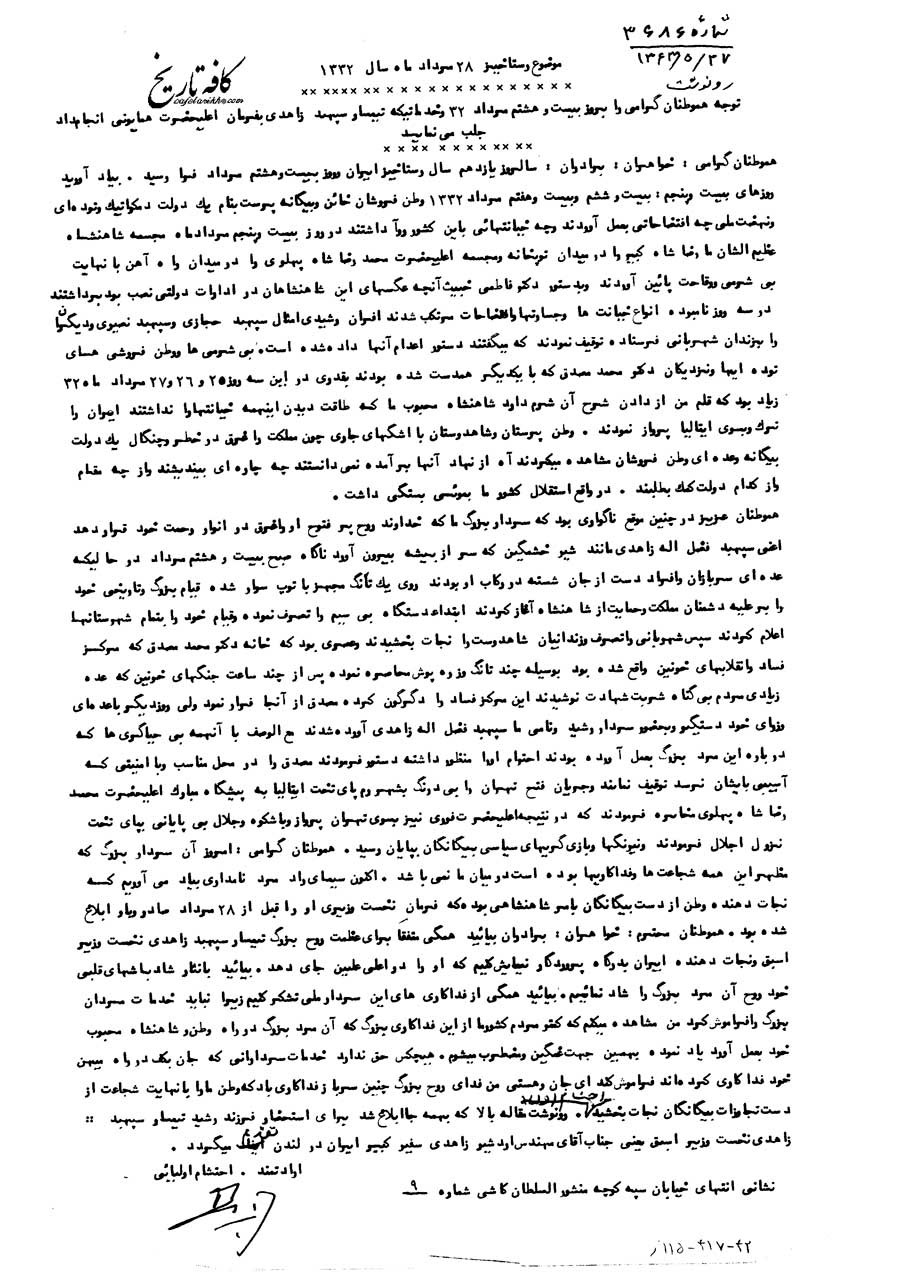 شماره ۳۶۸۶
رونوشت
کافه تاریخ
cafetarikh.com
موضوع رستاخیز ۲۸ مرداد ماه سال ۱۳۳۲
×× ×××× ×× × × × × × × × × × × × × × × ×
توجه هموطنان گرامی را بروز بیست و هشتم مرداد ۳۲ وخدماتیکه تیمسار سپهبد زاهدی بفرمان اعلیحضرت همایونی انجامداد
جلب می نمایید
× × × × × × × × × ×× ××
هموطنان گرامی : خواهران : برادران : سالروز یازدهم سال رستاخیز ایران وروز بیست وهشتم مرداد فرا رسید . بیاد آورید
روزهای بیست وپنجم : بیست و ششم وبیست وهفتم مرداد ۱۳۳۲ وطن فروشان خائن وبیگانه پرست بنام یك دولت دمکراتیك وتوده ای
ونهضت ملی چه افتضاحاتی بعمل آوردند وچه خیانتهائی باین کشور روآ داشتند در روز بیست وپنجم مرداد ماه مجسمه شاهنشاه
عظیم الشان ما رضا شاه کبیر را در میدان توپخانه ومجسمه اعلیحضرت محمد رضا شاه پهلوی را در میدان راه آهن با نهایت
بی شرمی ووقاحت پائین آوردند وبدستور دکتر فاطمی خبیث آنچه عکسهای این شاهنشاهان در ادارات دولتی نصب بود برداشتند
در سه روز نامبرده انواع خیانت ها وجسارتها وافتضاحات مرتکب شدند افسران رشیدی امثال سپهبد حجازی وسپهبد نصیری ودیگران
را بزندان شهربانی فرستاده توقیف نمودند که میگفتند دستور اعدام آنها داده شده است. بی شرمی ها ووطن فروشی هسای
توده ایها ونزدیکان دکتر محمد مصدق که با یکدیگر همدست شده بودند بقدری در این سه روز ۲۵ و ۲۶ و ۲۷ مرداد ماه ۳۲
زیاد بود که قلم من از دادن شرح آن شرم دارد شاهنشاه محبوب ما که طاقت دیدن اینهمه خیانتهارا نداشتند ایران را
ترك وبسوی ایتالیا پرواز نمودند . وطن پرستان وشاهدوستان با اشگهای جاری چون مملکت را غرق در خطر وچنگال یك دولت
بیگانه وعده ای وطن فروشان مشاهده میکردند آه از نهاد آنها برآمده نمی دانستند چه چاره ای بیندیشند واز چه مقام
واز کدام دولت کمك بطلبند . در واقع استقلال کشور ما بموئی بستگی داشت .
هموطنان عزیز در چنین موقع ناگواری بود که سردار بزرگ ما که خداوند روح پر فتوح او را غرق در انوار رحمت خود قرار دهد
اعنی سپهبد فضل اله زاهدی مانند شیر خشمگین که سر از بیشه بیرون آورد ناگاه صبح بیست و هشتم مرداد در حا لیکه
عده ای سربازان وافراد دست از جان شسته در رکاب او بودند روی یك تانگ مجهز با توپ سوار شده قیام بزرگ وتاریخی خود
را بر علیه دشمنان مملکت وحمایت از شاهنشاه آغاز کردند ابتدا دستگاه بی سیم را تصرف نموده وقیام خود را بتمام شهرستانها
اعلام کردند سپس شهربانی را تصرف وزندانیان شاهدوست را نجات بخشیدند وعصری بود که خانه دکتر محمد مصدق که مرکز
فساد وانقلابهای خونین واقع شده بود بوسیله چند تانگ وزره پوش محاصره نموده پس از چند ساعت جنگهای خونین که عده
زیادی مردم بی گناه شربت شهادت نوشیدند این مرکز فساد را دگرگون کرده مصدق از آنجا فرار نمود ولی روز دیگر با عده ای
وزرای خود دستگیر وبحضور سردار رشید ونامی ما سپهبد فضل اله زاهدی آورده شدند مع الوصف با آنهمه بی حیاگری ها که
در باره این مرد بزرگ بعمل آورده بودند احترام اورا منظور داشته دستور فرمودند مصدق را در محل مناسب وبا امنیتی کسه
آسیبی بایشان نرسد توقیف نمایند وجریان فتح تهران را بی درنگ بشهر رم پای تخت ایتالیا به پیشگاه مبارك اعلیحضرت محمد
رضا شاه پهلوی مخابره فرمودند که در نتیجه اعلیحضرت فوری نیز بسوی تهران پرواز وباشکوه وجلال بی پایانی بپای تخت
نزول اجلال فرمودند ونیرنگها وبازی گریهای سیاسی بیگانگان بپایان رسید . هموطنان گرامی : امروز آن سردار بزرگ که
مظهر این همه شجاعت ها وفداکاریها بوده است در میان ما نمی باشد . اکنون سیمای راد مرد نامداری بیاد می آوریم کسه
نجات دهنده وطن از دست بیگانگان بامر شاهنشاهی بوده که فرمان نخست وزیری او را قبل از ۲۸ مرداد صادر وباو ابلاغ
شده بود . هموطنان محترم : خواهران : برادران بیائید همگی متفقا برای عظمت روح بزرگ تیمسار سپهبد زاهدی نخست وزیر
اسبق ونجات دهنده ایران بدرگاه پروردگار نیایش کنیم که او را در اعلی علیین جای دهد . بیائید بانثار شادباشهای قلبی
خود روح آن مرد بزرگ را شاد نمائیم . بیائید همگی از فداکاری های این سردار ملی تشکر کنیم زیرا نباید خدمات مردان
بزرگ را فراموش کرد من مشاهده میکنم که کمتر مردم کشور ما از این فداکاری بزرگ که آن مرد بزرگ در راه وطن وشاهنشاه محبوب
خود بعمل آورد یاد نموده بهمین جهت غمگین ومضطرب میشوم . هیچکس حق ندارد خدمات سردارانی که جان بکف در راه میهن
خود فداکاری کرده اند فراموش کند ای جان وهستی من فدای روح بزرگ چنین سرباز فداکاری باد که وطن مارا بانهایت شجاعت از
دست تجاوزات بیگانگان نجات بخشید . رونوشت مقاله بالا که بهمه جا ابلاغ شد برای استحضار فرزند رشید تیمسار سپهبد ::
زاهدی نخست وزیر اسبق یعنی جناب آقای مهندس اردشیر زاهدی سفیر کبیر ایران در لندن تقدیم میگردد .
ارادتمند . احتشام اولیائی
نشانی انتهای خیابان سپه کوچه منشور السلطان کاشی شماره ۹
۱۱۵-۴۱۷-۴۲ز